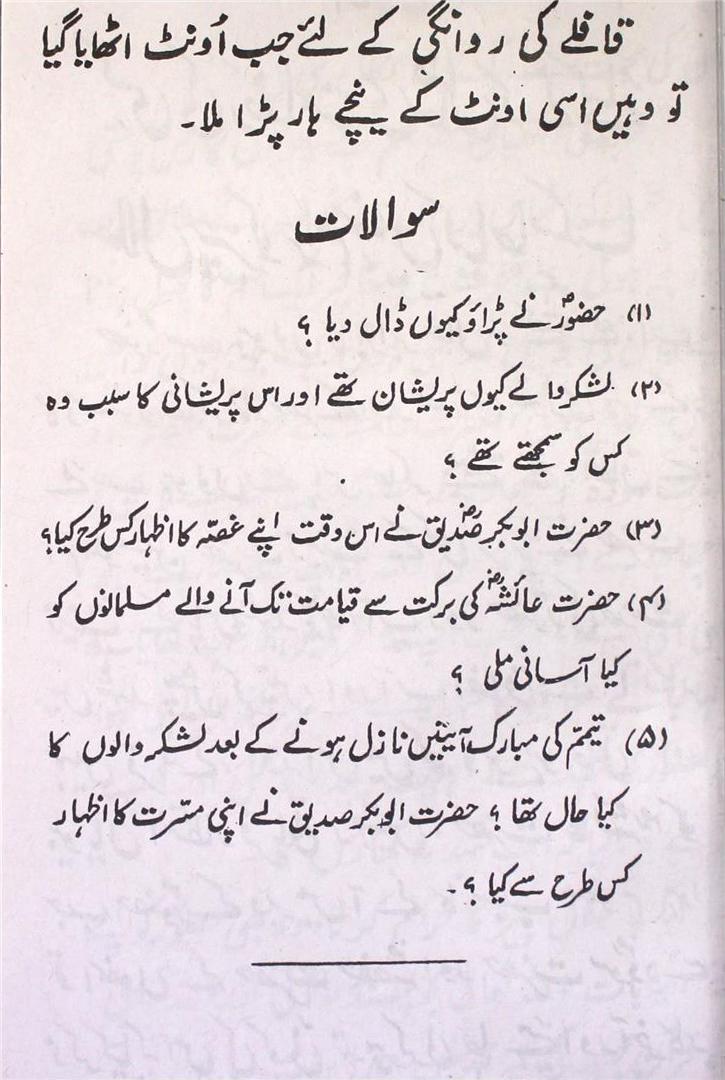 قافلے کی روانگی کے لئے جب اُونٹ اٹھایا گیا
تو وہیں اسی اونٹ کے نیچے ہار پڑا ملا۔
سوالات
(۱) حضورؐ نے پڑاؤ کیوں ڈال دیا ؟
(۲) لشکر والے کیوں پریشان تھے اور اس پریشانی کا سبب وہ
کس کو سمجھتے تھے ؟
(۳) حضرت ابوبکر صدیقؓ نے اس وقت اپنے غصّہ کا اظہار کس طرح کیا؟
(۴) حضرت عائشہؓ کی برکت سے قیامت تک آنے والے مسلمانوں کو
کیا آسانی ملی ؟
(۵) تیمّم کی مبارک آیتیں نازل ہونے کے بعد لشکر والوں کا
کیا حال تھا ؟ حضرت ابوبکر صدیق نے اپنی مسّرت کا اظہار
کس طرح سے کیا ؟۔